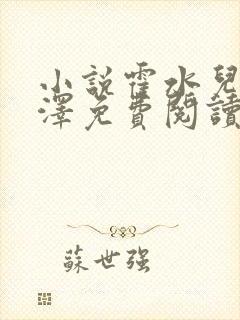 小說霍水兒
澤免費閱讀
蘇世强